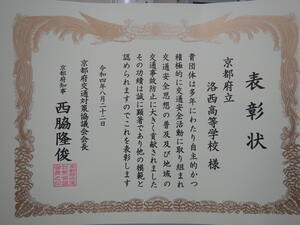 表彰状
京都府立
洛西高等学校 様
貴団体は多年にわたり自主的かつ
積極的に交通安全活動に取り組まれ
交通安全思想の普及及び地域の
交通事故防止に大きく貢献されました
その功績は誠に顕著であり他の模範と
認められますのでこれを表彰します
令和四年八月二十二日
京都府交通対策協議会会長
京都府知事 西脇隆俊